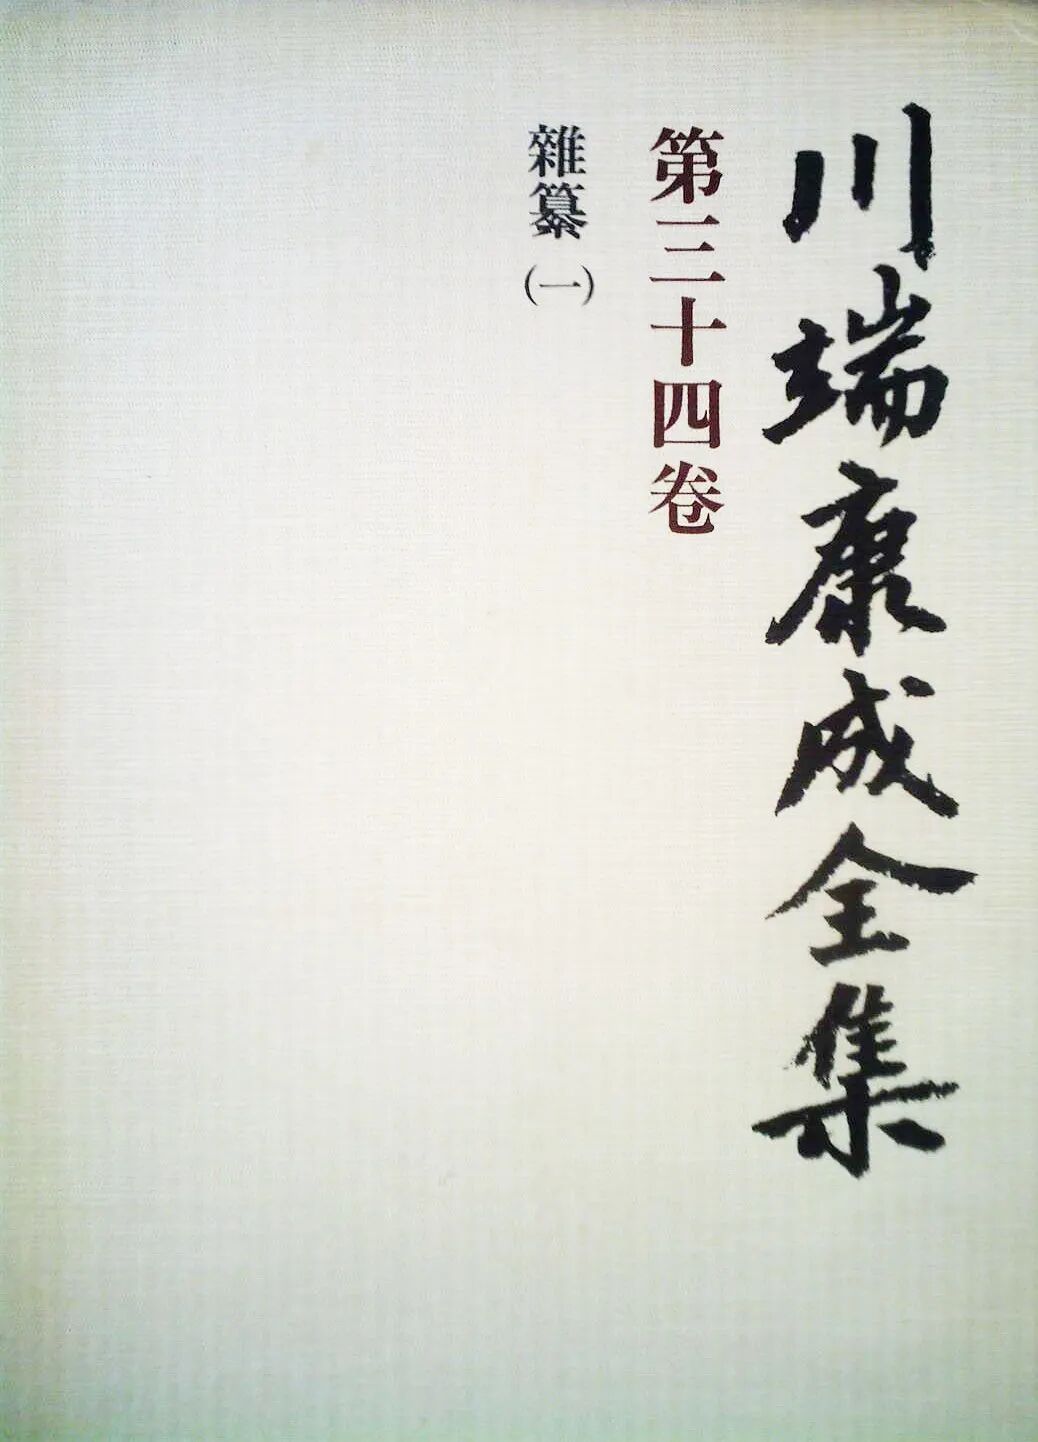 川端康成全集
第三十四卷
雜纂(一)